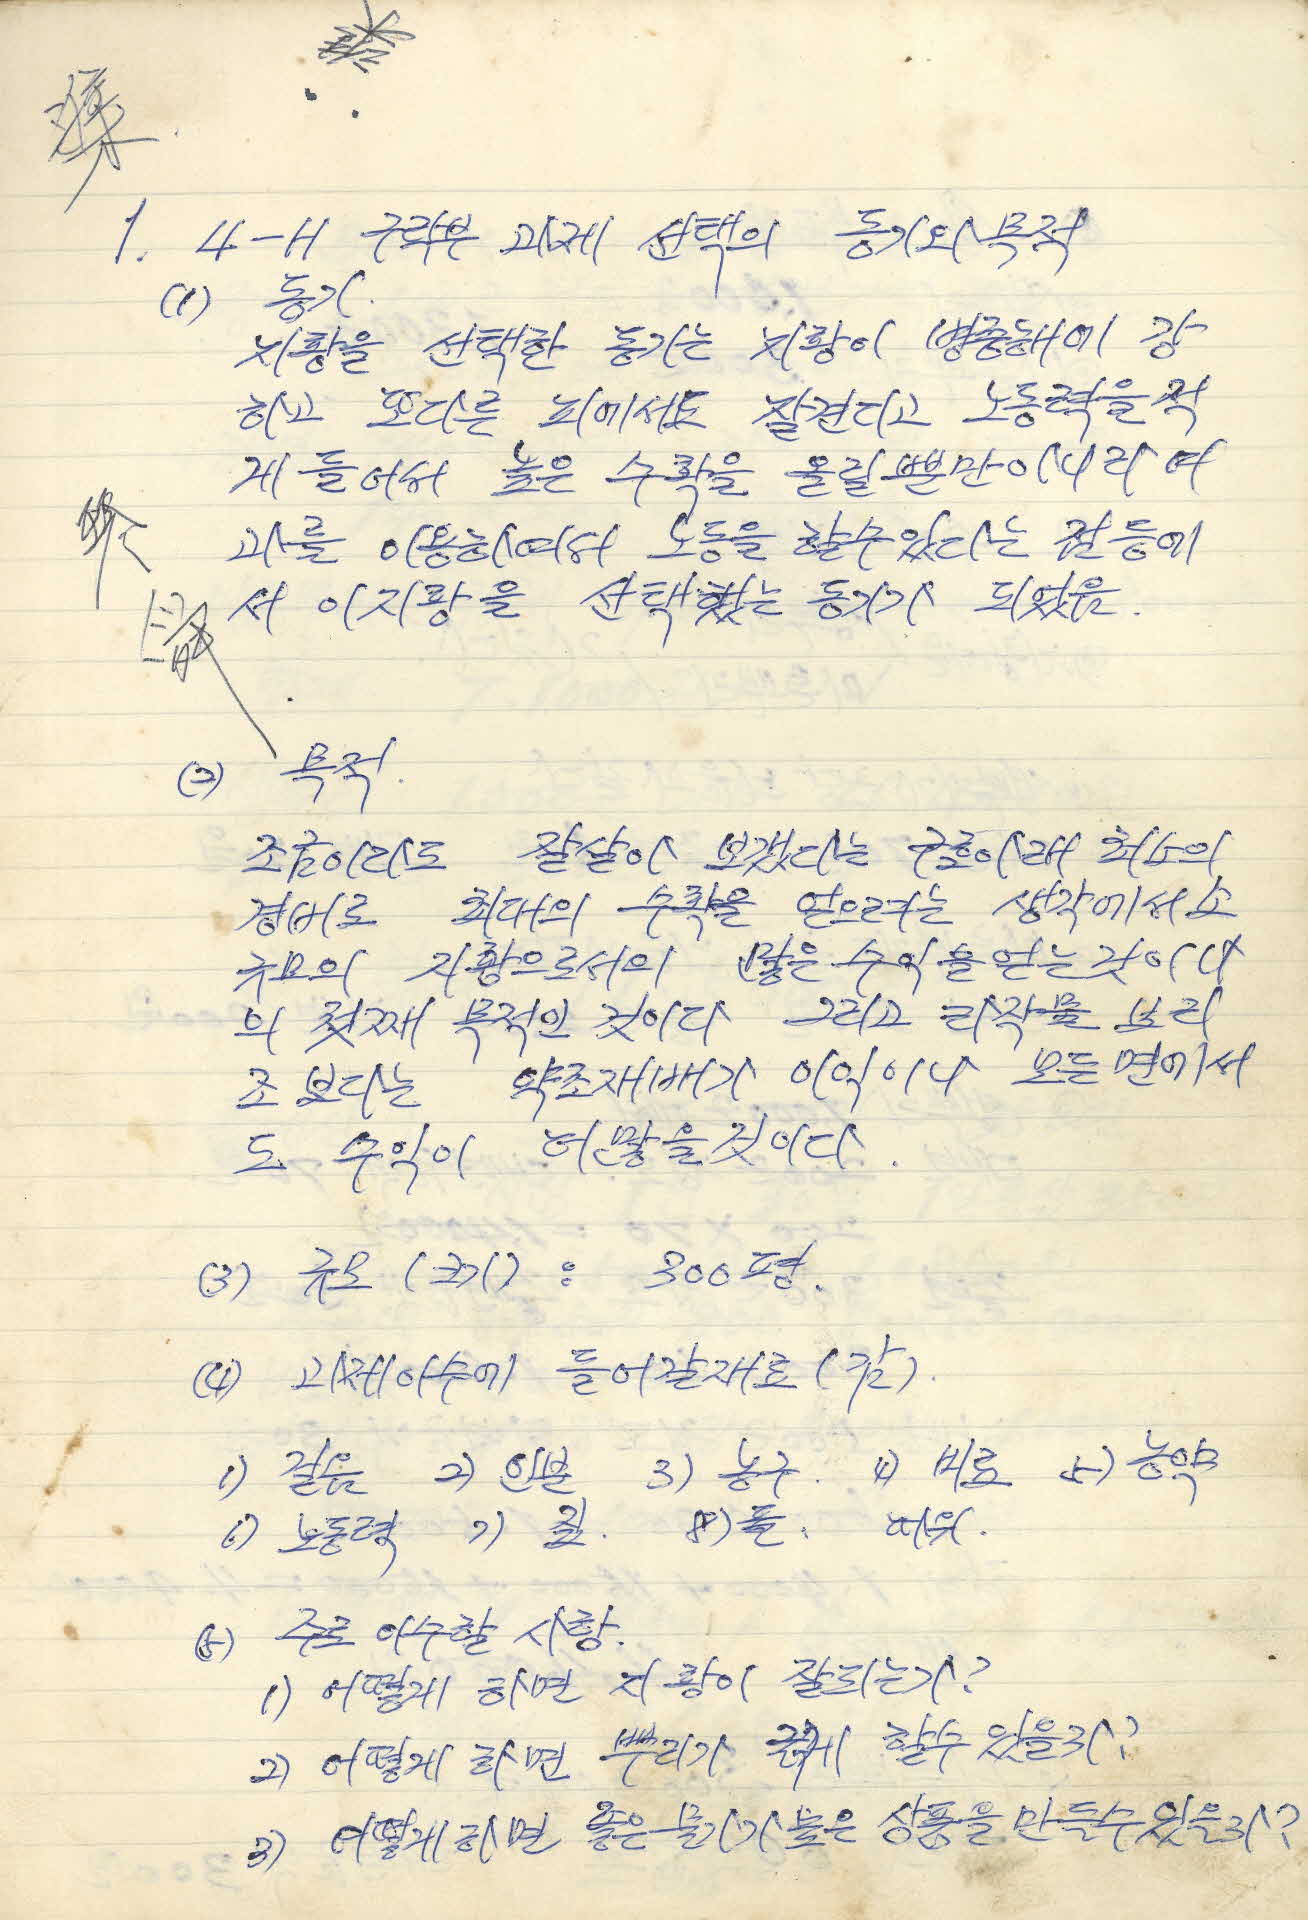 1. 4-H 구락부 과제 선택의 동기와 목적
(1) 동기.
지황을 선택한 동기는 지황이 병충해에 강
하고 또다른 피에서도 잘견디고 노동력을 적
게 들여서 높은 수확을 올릴뿐만아니라 여
가를 이용하여서 노동을 할수있다는 점 등에
서 이지황을 선택했는 동기가 되었음.
(2) 목적.
조금이라도 잘살아 보겠다는 구호아래 최소의
경비로 최대의 수확을 얻으려는 생각에서 소
규모의 지황으로서의 많은 수익을 얻는것이 나
의 첫째 목적인 것이다 그리고 타작물 보리
조 보다는 약초재배가 이익이나 모든면에서
도 수익이 더많을것이다.
(3) 규모 (크기) : 300평.
(4) 과제이수에 들어갈재료 (감).
1) 걸음 2) 인분 3) 농구. 4) 비료 5) 농약
6) 노동력 7) 짚. 8) 풀.
(5) 주로 이수할 사항.
1) 어떻게 하면 지황이 잘되는가?
2) 어떻게 하면 뿌리가 굵게 할수 있을가?
3) 어떻게하면 좋은 물가가 높은 상품을 만들수있을가?